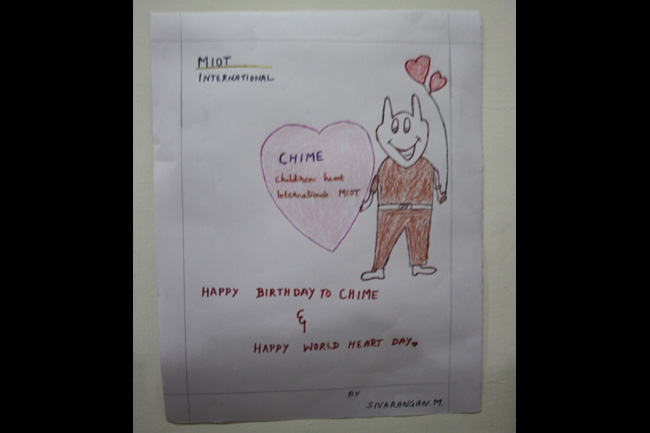 MIOT
INTERNATIONAL
CHIME
children heart
International MIOT
HAPPY BIRTHDAY TO CHIME
&
HAPPY WORLD HEART DAY
BY
SIVARANGAN.M.